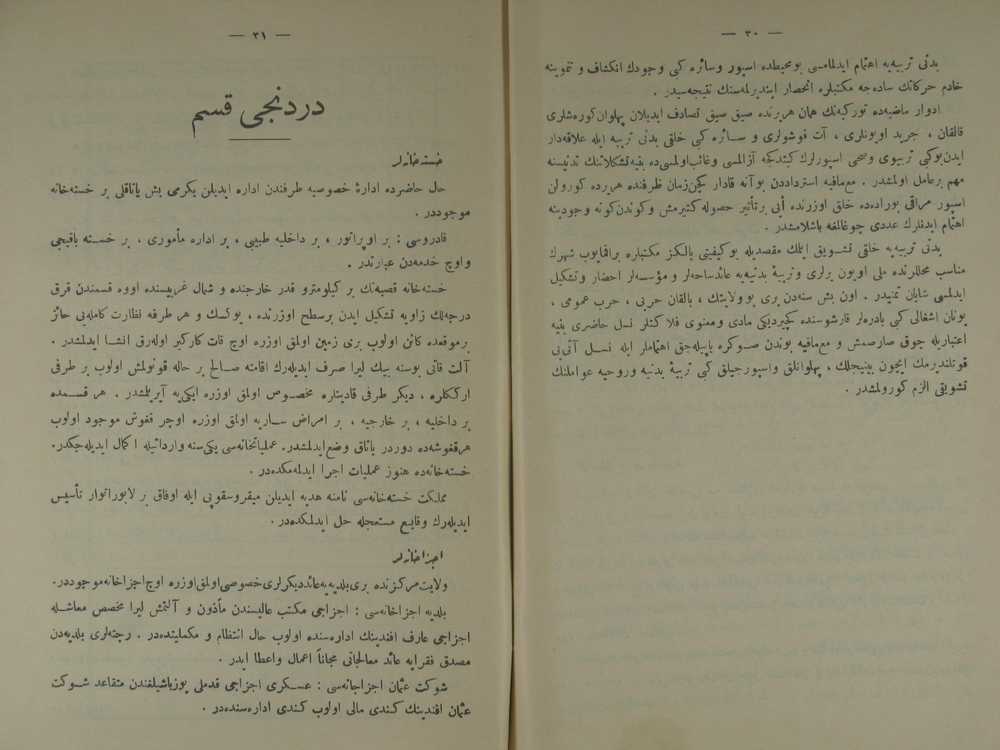 — ٣٠ —
بدنی تربیه‌یه اهتمام ایدلمامسی بومحیطده اسپور وسائره کبی وجودك انکشاف و تنمیه‌سنه
خادم حرکاتك ساده‌جه مکتبلره انحصار ایتدیرلمه‌سنك نتیجه‌سیدر .
ادوار ماضیه‌ده تورکیه‌نك همان هریرنده صیق صیق تصادف ایدیلان پهلوان کوره‌شلری
قالقان ، جرید اویونلری ، آت قوشولری و سائره کبی خلقی بدنی تربیه ایله علاقه‌دار
ایدن‌بوکبی تربیوی وصحی اسپورلرك کیتدکجه آزالمسی وغائب‌اولمسی‌ده بنیه‌تشکلاتنك تدنیسنه
مهم برعامل اولمشدر . مع‌مافیه استرداددن بوآنه قادار کچن‌زمان ظرفنده هریرده کورولن
اسپور مراقی بوراده‌ده خلق اوزرنده أیی برتأثیر حصوله کتیرمش وکوندن‌کونه وجودینه
اهتمام ایدنلرك عددی چوغالمغه باشلامشدر .
بدنی تربیه‌یه خلقی تشویق ایتمك مقصدیله بوکیفیتی یالکز مکتبلره براقمایوب شهرك
مناسب محللرنده ملی اویون یرلری وتربیهٔ بدنیه‌یه عائدساحه‌لر و مؤسسه‌لر احضار وتشکیل
ایدلمسی شایان تمنیدر . اون بش سنه‌دن بری بوولایتك ، بالقان حربی ، حرب عمومی ،
یونان اشغالی کبی بادره‌لر قارشوسنده کچیردیکی مادی ومعنوی فلاکتلر نسل حاضری بنیه
اعتباریله چوق صارصمش و مع‌مافیه بوندن صوکره یاپیله‌جق اهتماملر ایله نسل آتی‌یی
قوتلندیرمك ایچون بینیجیلك ، پهلوانلق واسپورجیلق کبی تربیهٔ بدنیه وروحیه عواملنك
تشویقی الزم کورولمشدر .
— ٣١ —
دردنجی قسم
خسته‌خانه‌لر
حال حاضرده ادارهٔ خصوصیه طرفندن اداره ایدیلن یکرمی بش یاتاقلی بر خسته‌خانه
موجوددر .
قادروسی : بر اوپراتور ، بر داخلیه طبیبی ، بر اداره مأموری ، بر خسته باقیجی
واوچ خدمه‌دن عبارتدر .
خسته‌خانه قصبه‌نك بر کیلومترو قدر خارجنده و شمال غربیسنده اووه قسمندن قرق
درجه‌لك زاویه تشکیل ایدن برسطح اوزرنده ، یوکسك و هر طرفه نظارت کامله‌یی حائز
برموقعده کائن اولوب بری زمین اولمق اوزره اوچ قات کارکیر اوله‌رق انشا ایدلمشدر .
آلت قاتی بوسنه بیك لیرا صرف ایدیله‌رك اقامته صالح بر حاله قونولمش اولوب بر طرفی
ارککلره ، دیکر طرفی قادینلره مخصوص اولمق اوزره ایکی‌یه آیریلمشدر . هر قسمده
بر داخلیه ، بر خارجیه ، بر امراض ساریه اولمق اوزره اوچر قغوش موجود اولوب
هرقغوشه‌ده دوردر یاتاق وضع‌ایدلمشدر. عملیاتخانه‌سی یکی‌سنه وارداتیله اکمال ایدیله‌جکدر.
خسته‌خانه‌ده هنوز عملیات اجرا ایدلمه‌مکده‌در .
مملکت خسته‌خانه‌سی نامنه هدیه ایدیلن میقروسقوپی ایله اوفاق بر لابوراتوار تأسیس
ایدیله‌رك وقایع مستعجله حل ایدلمکده‌در .
اجزاخانه‌لر
ولایت‌مرکزنده بری‌بلدیه‌یه‌عائددیکرلری‌خصوصی‌اولمق‌اوزره اوچ‌اجزاخانه‌موجوددر.
بلدیه اجزاخانه‌سی : اجزاجی مکتب عالیسندن مأذون و آلتمش لیرا مخصص معاشله
اجزاجی عارف افندینك اداره‌سنده اولوب حال انتظام و مکملیتده‌در . رچته‌لری بلدیه‌دن
مصدق فقرایه عائد معالجاتی مجاناً اعمال واعطا ایدر .
شوکت عثمان اجزاخانه‌سی : عسکری اجزاجی قدملی یوزباشیلغندن متقاعد شوکت
عثمان افندینك کندی مالی اولوب کندی اداره‌سنده‌در .